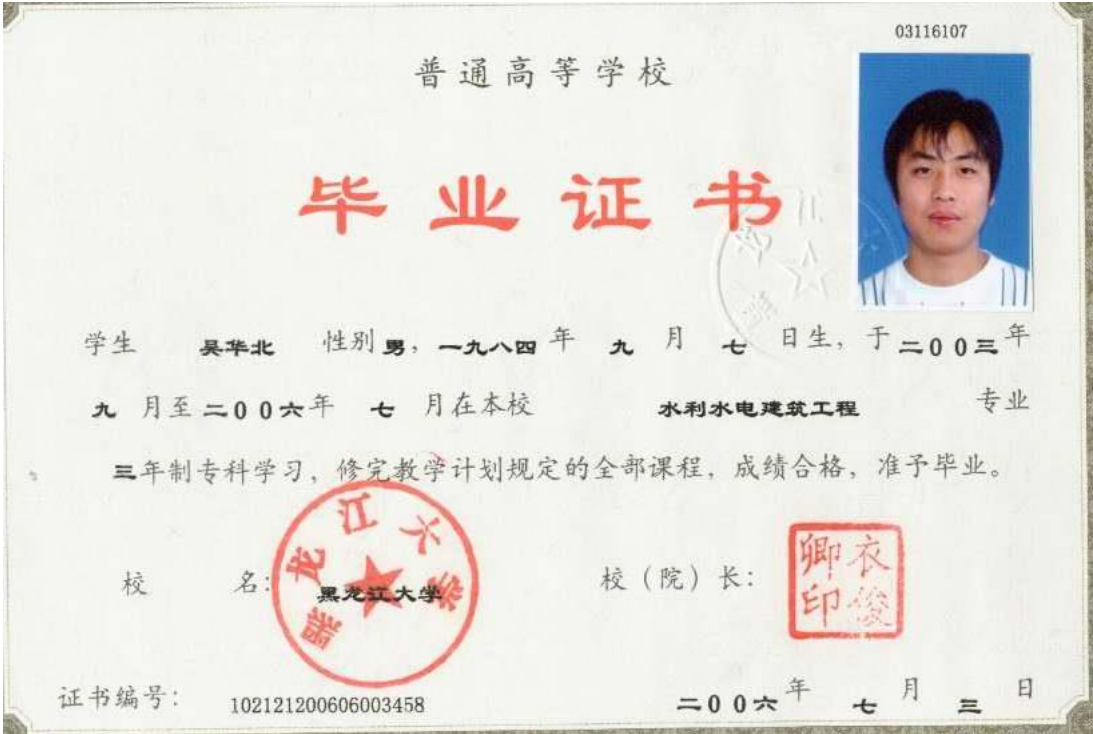 03116107
普通高等学校
毕业证书
学生 吴华北 性别男，一九八四年 九 月 七 日生，于二00三年
九 月至二00六年 七 月在本校 水利水电建筑工程 专业
三年制专科学习，修完教学计划规定的全部课程，成绩合格，准予毕业。
校 名：黑龙江大学
黑龙江大学
校（院）长：
衣俊卿印
证书编号：102121200606003458
二00六年 七 月 三 日